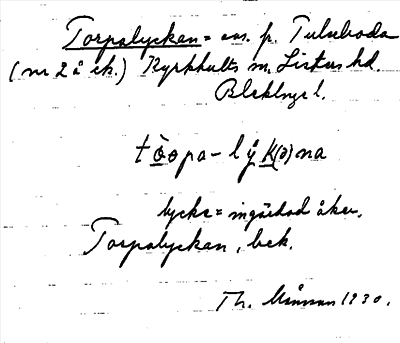 Torpalyckan = ens. p. Tuluboda
(nr 2 å ek.) Kyrkhults sn. Listers hd.
Blekinge l.
tòopa-lyk(ə)na
lycka = ingärdad åker.
Torpalyckan, bek.
Th. Månsson 1930.